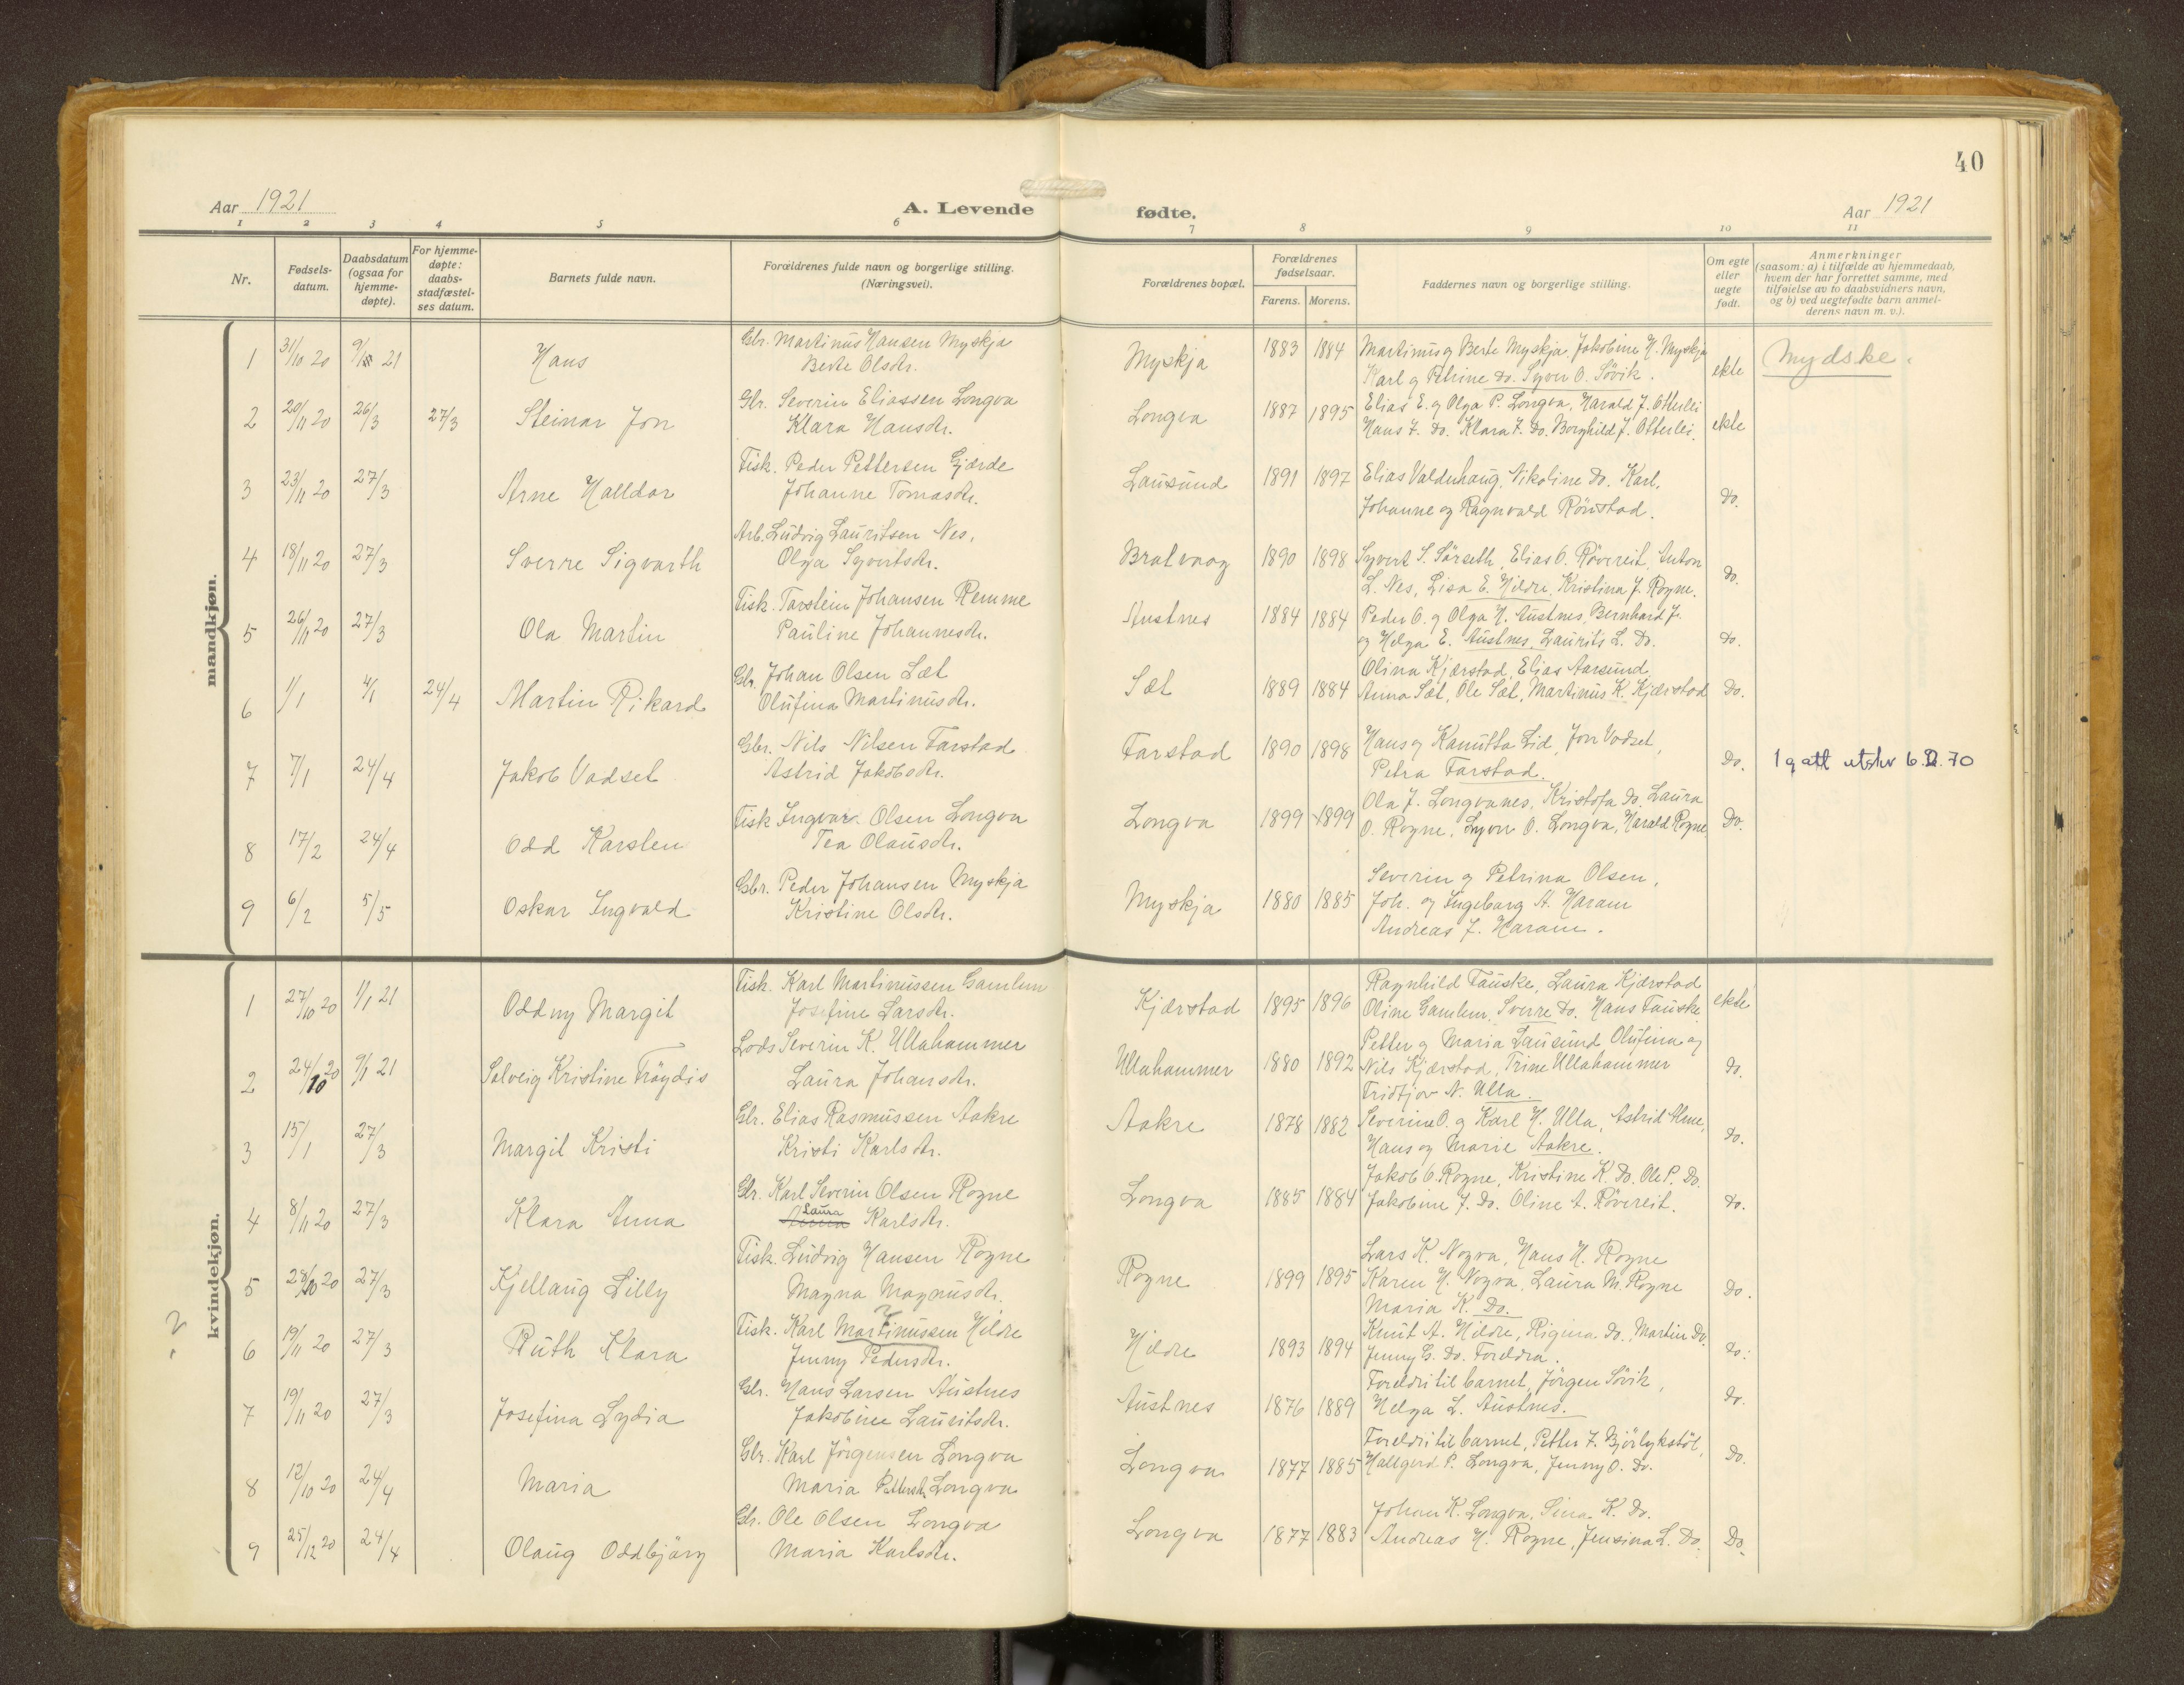 40
Aar 1921
A. Levende fødte.
Aar 1921
1 2 3 4 5 6 7 8 9 10 11
Nr.
Fødsels-
datum.
Daabsdatum
(ogsaa for
hjemme-
døpte).
For hjemme-
døpte:
daabs-
stadfæstel-
ses datum.
Barnets fulde navn.
Forældrenes fulde navn og borgerlige stilling.
(Næringsvei).
Forældrenes bopæl.
Forældrenes
fødselsaar.
Farens. Morens.
Faddernes navn og borgerlige stilling.
Om egte
eller
uegte
født.
Anmerkninger
(saasom: a) i tilfælde av hjemmedaab,
hvem der har forrettet samme, med
tilføielse av to daabsvidners navn,
og b) ved uegtefødte barn anmel-
derens navn m. v.).
mandkjøn.
1 31/10 20 9/1 21 Hans Gbr. Martinus Hansen Myskja Myskja 1883 1884 Martinus og Berte Myskja, Jakobine H. Myskja ekte Mydske.
Berte Olsdr. Karl og Petrine Do. Syver O. Søvik.
2 20/11 20 26/3 27/3 Steinar Jon Gbr. Severin Eliassen Longva Longva 1887 1895 Elias E. og Olga P. Longva, Harald J. Otterlei ekte
Klara Hansdr. Hans J. Do. Klara J. Do. Borghild J. Otterlei.
3 23/11 20 27/3 Arne Halldor Fisk. Peder Pettersen Gjærde Lausund 1891 1897 Elias Valderhaug, Nikoline Do. Karl, Do.
Johanne Tomasdr. Johanne og Ragnvald Rönstad.
4 18/11 20 27/3 Sverre Sigvarth Arb. Ludvig Lauritsen Nes, Bratvaag 1890 1898 Syvert S. Sørseth, Elias O. Røvereit, Anton Do.
Olga Syvertsdr. L. Nes, Lisa E. Hildre, Kristina J. Rogne.
5 26/11 20 27/3 Ola Martin Fisk. Torstein Johansen Remme Austnes 1884 1884 Peder O. og Olga H. Austnes, Bernhard J. Do.
Pauline Johannesdr. og Helga E. Austnes, Laurits L. Do.
6 1/1 4/1 24/4 Martin Rikard Gbr. Johan Olsen Sæt Sæt 1889 1884 Olina Kjærstad, Elias Aarsund, Do.
Olufina Martinusdr. Anna Sæt, Ole Sæt, Martinus K. Kjærstad
7 7/1 24/4 Jakob Vadset Gbr. Nils Nilsen Farstad Farstad 1890 1898 Hans og Kanutta Lid, Jon Vadset, Do. 1 g att utskr 6.2.70
Astrid Jakobsdr. Petra Farstad.
8 17/2 24/4 Odd Karsten Fisk Ingvar Olsen Longva Longva 1899 1899 Ola J. Longvanes, Kristofa Do. Laura Do.
Tea Olausdr. O. Rogne, Syver O. Longva, Harald Rogne
9 6/2 5/5 Oskar Ingvald Gbr. Peder Johansen Myskja Myskja 1880 1885 Severin og Petrina Olsen,
Kristine Olsdr. Joh. og Ingeborg A. Haram
Andreas J. Haram.
kvindekjøn.
1 27/10 20 1/1 21 Oddny Margit Fisk. Karl Martinussen Gamlem Kjærstad 1895 1896 Ragnhild Fauske, Laura Kjærstad ekte
Josefine Larsdr. Oline Gamlem, Sverre Do. Hans Fauske.
2 24/10 20 9/1 21 Solveig Kristine Fröydis Lods Severin K. Ullahammer Ullahammer 1880 1892 Petter og Maria Lausund Olufina og Do.
Laura Johansdr. Nils Kjærstad, Trine Ullahammer
Fridtjov N. Ulla.
3 15/1 27/3 Margit Kristi Gbr. Elias Rasmussen Aakre Aakre 1878 1882 Severine O. og Karl H. Ulla, Astrid Alme, Do.
Kristi Karlsdr. Hans og Marie Aakre.
4 8/11 20 27/3 Klara Anna Gbr. Karl Severin Olsen Rogne Longva 1885 1884 Jakob O. Rogne, Kristine K. Do. Ole P. Do. Do.
Anna Laura Karlsdr. Jakobine J. Do. Oline A. Røvereit.
5 28/10 20 27/3 Kjellaug Lilly Fisk. Ludvig Hansen Rogne Rogne 1899 1895 Lars K. Nogva, Hans H. Rogne Do.
Magna Magnusdr. Karen H. Nogva, Laura M. Rogne
Maria K. Do.
? 6 19/11 20 27/3 Ruth Klara Fisk. Karl Martinussen Hildre Hildre 1893 1894 Knut A. Hildre, Rigina Do. Martin Do. Do.
Jenny Pedersdr. Jenny G. Do. Foreldra.
7 19/11 20 27/3 Josefina Lydia Gbr. Hans Larsen Austnes Austnes 1876 1889 Foreldri til barnet, Jörgen Søvik, Do.
Jakobine Lauritsdr. Helga L. Austnes.
8 12/10 20 24/4 Maria Gbr. Karl Jörgensen Longva Longva 1877 1885 Foreldri til barnet, Petter J. Bjørlykstøl, Do.
Maria Pettersdr. Longva Hallgerd P. Longva, Jenny O. Do.
9 25/12 20 24/4 Olaug Oddbjörg Gbr. Ole Olsen Longva Longva 1877 1883 Johan K. Longva, Sina K. Do. Do.
Maria Karlsdr. Andreas H. Rogne, Jensina L. Do.